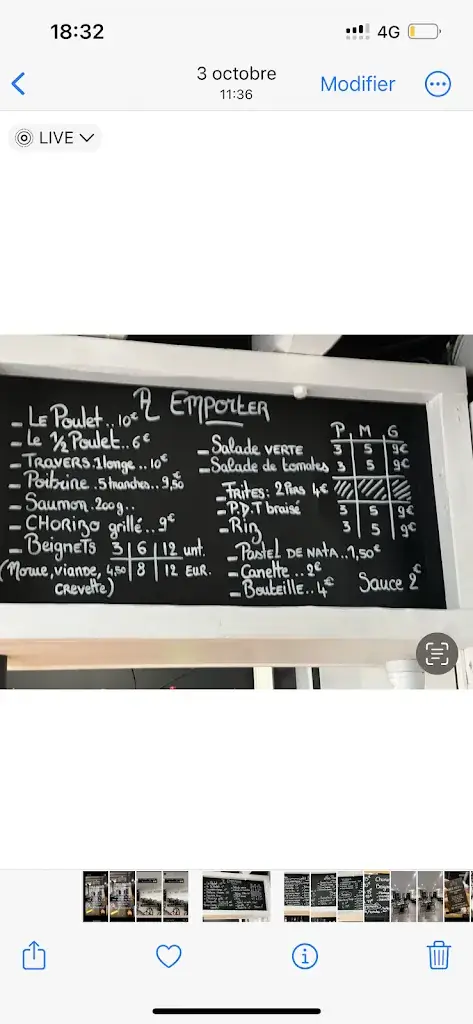 18:32
4G
3 octobre
11:36
Modifier
LIVE
A EMPORTER
- LE Poulet..10€
- Le 1/2 Poulet..6€
- TRAVERS.1longe...10€
- Poitrine.5tranches..9,50€
- Saumon.200g..
- CHORIZO grillé..9€
- Beignets 3 | 6 | 12 unt.
(Morue, viande, crevette) 4,50 | 8 | 12 EUR.
P M G
- Salade VERTE 3 5 9€
- Salade de tomates 3 5 9€
- FRITES: 2 Pers 4€
- P.D.T braisé 3 5 9€
- Riz 3 5 9€
- PASTEL DE NATA..1,50€
- Canette...2€
- Bouteille..4€
Sauce 2€